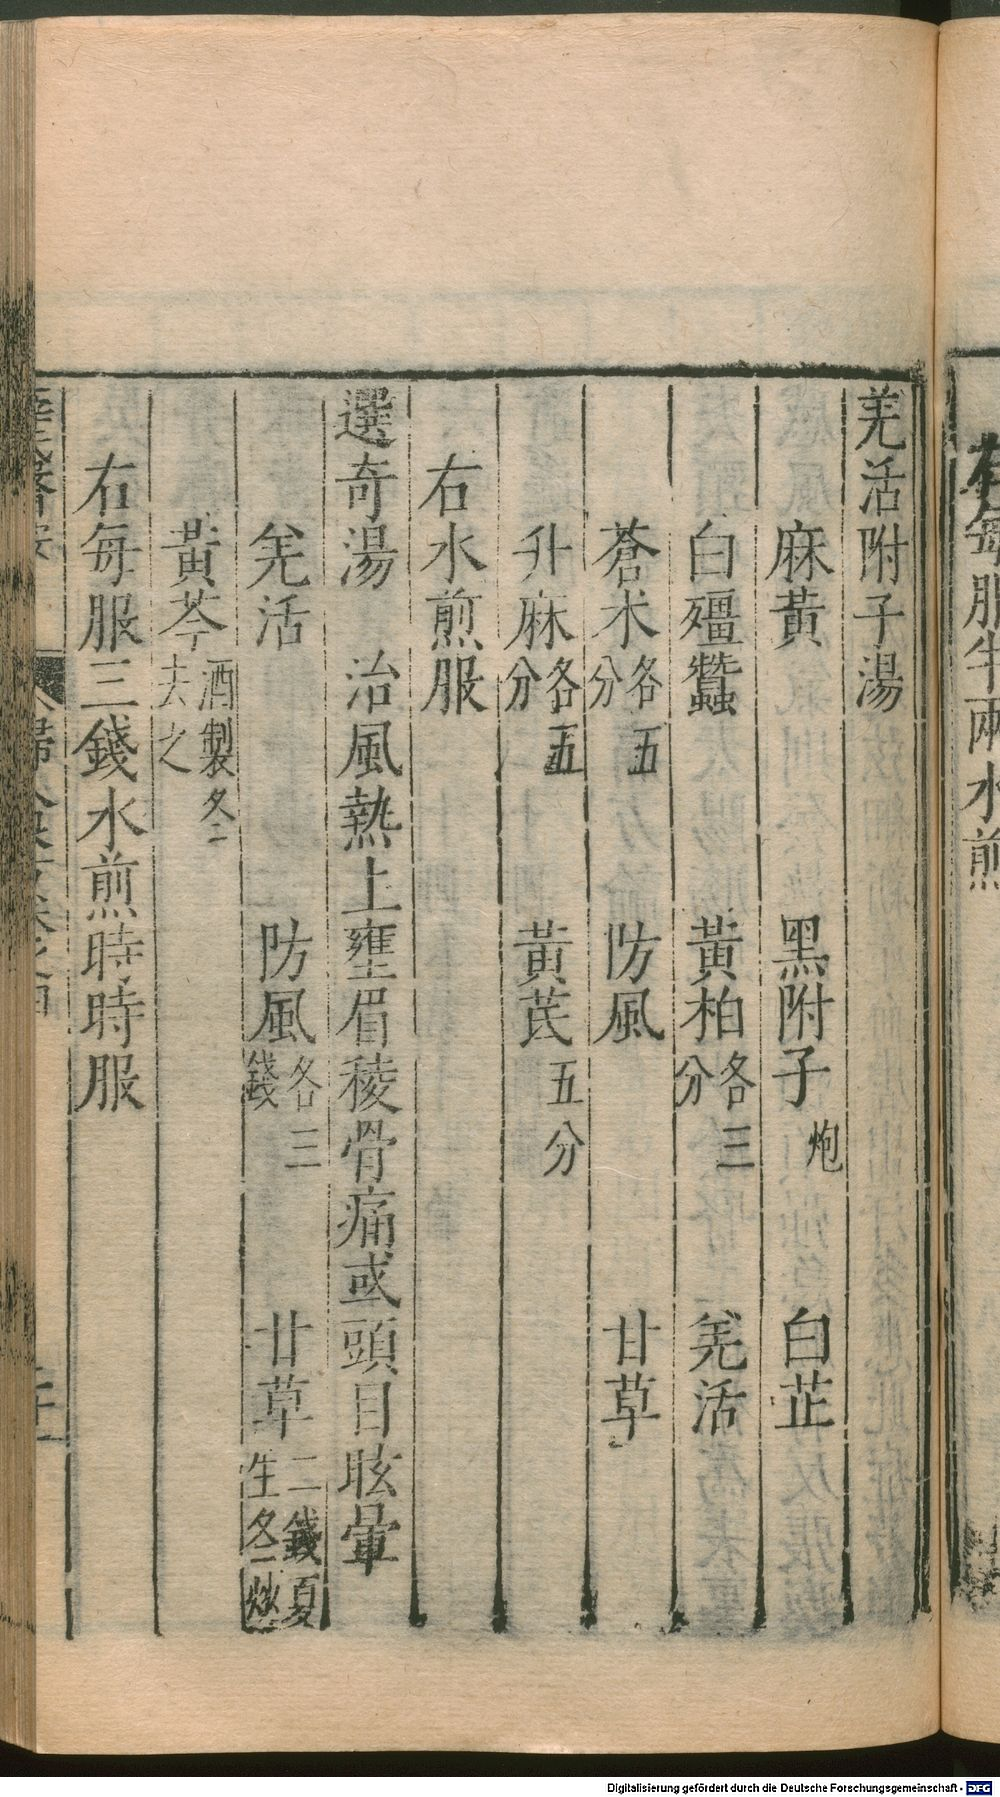 右每服半兩水煎
羌活附子湯
麻黃　黑附子炮　白芷
白殭蠶　黃柏各三分　羌活
蒼朮各五分　防風　甘草
升麻各五分　黃芪五分
右水煎服
選奇湯　治風熱上壅眉稜骨痛或頭目眩暈
羌活　防風各三錢　甘草二錢夏生冬炙
黃芩酒製冬去之
右每服三錢水煎時時服
Digitalisierung gefördert durch die Deutsche Forschungsgemeinschaft - DFG